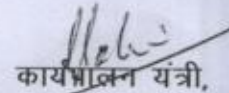 कार्यपालन यंत्री,